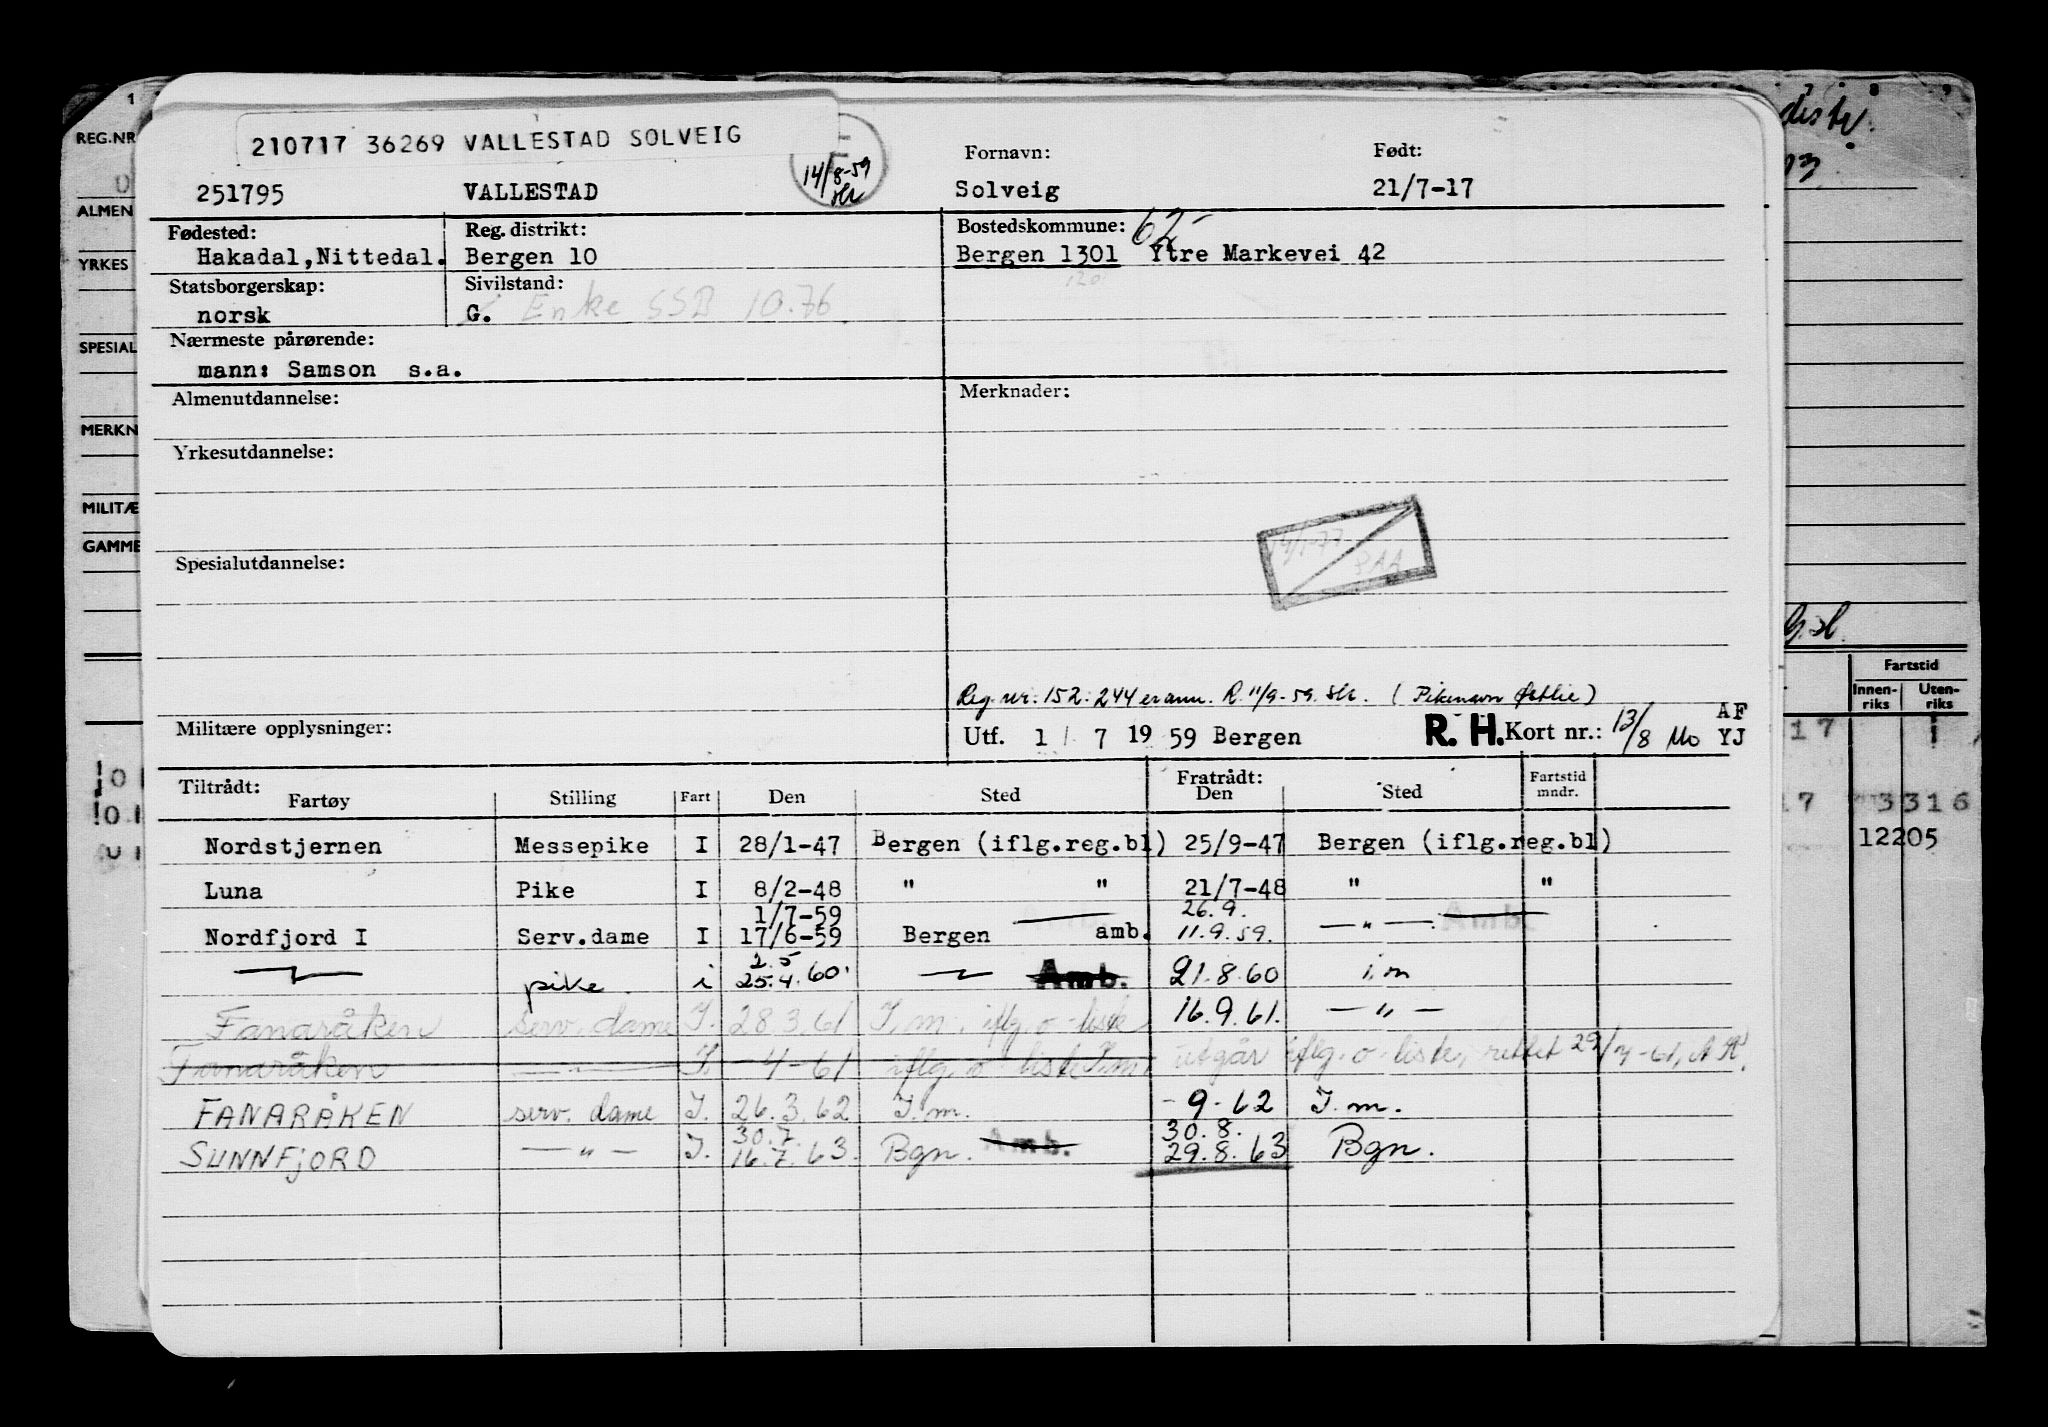 1
REG.NR
210717 36269 VALLESTAD SOLVEIG
14/8-59
Fornavn: Født:
251795 VALLESTAD Solveig 21/7-17
ALMEN
Fødested: Reg. distrikt: Bostedskommune: 62-
Hakadal,Nittedal. Bergen 10 Bergen 1301 Ytre Markevei 42
YRKES
Statsborgerskap: Sivilstand:
norsk G. Enke SSB 10.76
Nærmeste pårørende:
SPESIAL
mann: Samson s.a.
Almenutdannelse: Merknader:
MERKN
Yrkesutdannelse:
MILITÆ
GAMME
Spesialutdannelse:
Reg. nr: 152.244 er ann. R. 11/9-59. (Pikenavn Østlie)
Militære opplysninger: Utf. 1 / 7 19 59 Bergen R. H. Kort nr.: 13/8 Mo AF
YJ
Fartstid
Innen-riks Uten-riks
17
Tiltrådt: Fratrådt:
Fartøy Stilling Fart Den Sted Den Sted Fartstid mndr.
17 3316
Nordstjernen Messepike I 28/1-47 Bergen (iflg.reg.bl) 25/9-47 Bergen (iflg.reg.bl)
12205
Luna Pike I 8/2-48 " " 21/7-48 " "
1/7-59 26.9.
Nordfjord I Serv.dame I 17/6-59 Bergen amb. 11.9.59. — " — Amb.
2.5
pike. i 25.4.60. Amb. 21.8.60 i.m
Fanaråken serv. dame I. 28.3.61 I.m. iflg. o-liste 16.9.61. — " —
Fanaråken — I. -4-61 iflg. o-liste I.m. utgår iflg. o-liste, rettet
FANARÅKEN serv. dame I. 26.3.62 I.m. -9-62 I.m.
30.7. 30.8.
SUNNFJORD — " — I. 16.7.63. Bgn. Amb. 29.8.63 Bgn.